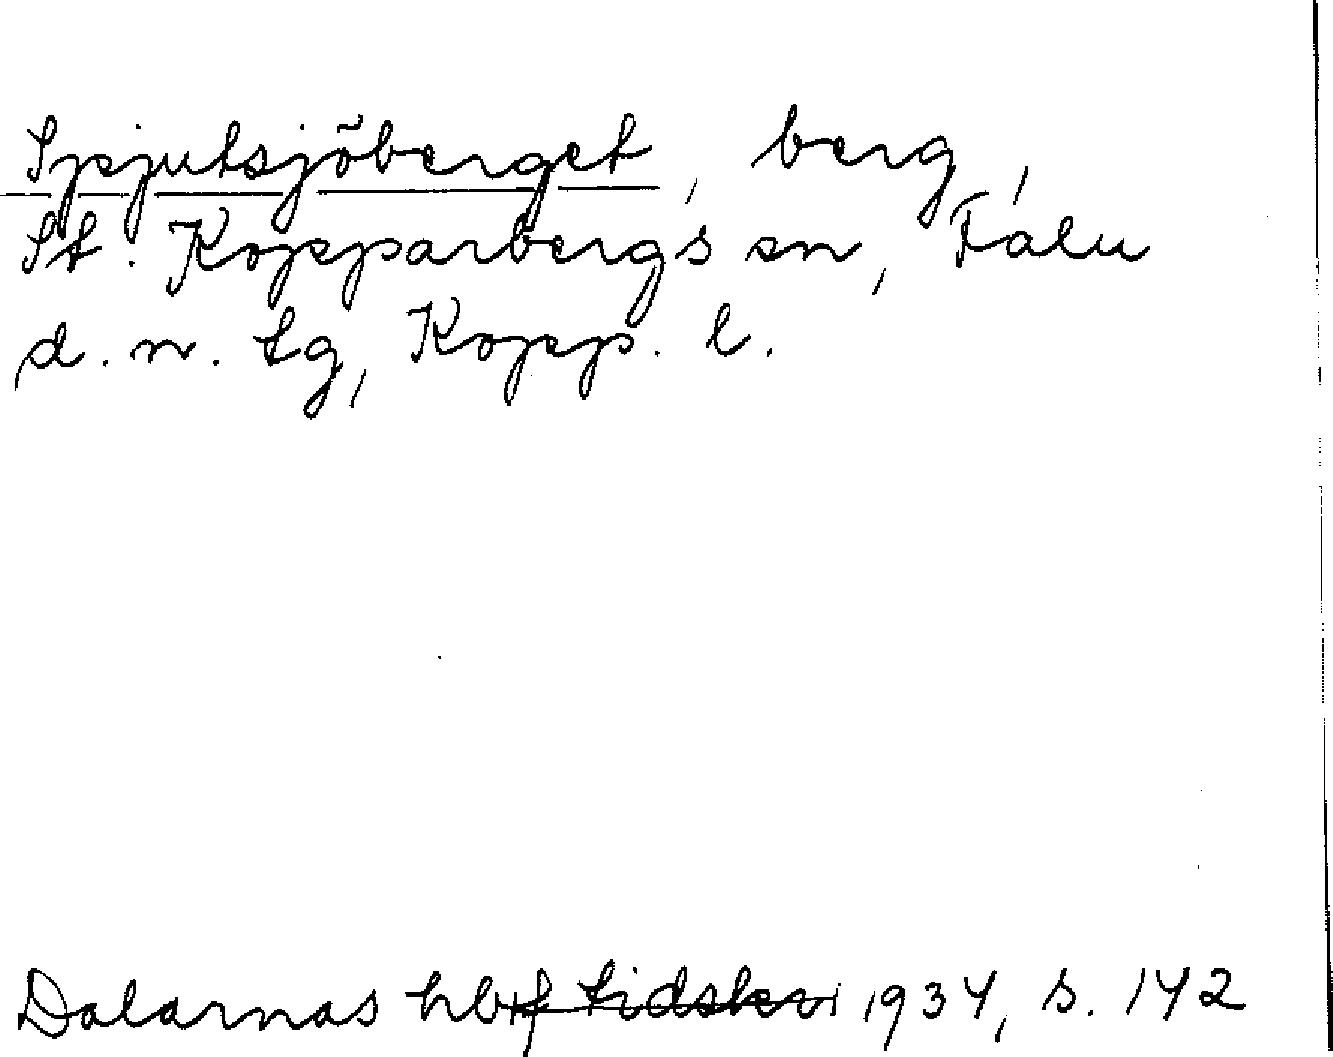 Spjutsjöberget, berg,
St. Kopparbergs sn, Falu
d. n. tg, Kopp. l.
Dalarnas hbf tidskr 1934, s. 142